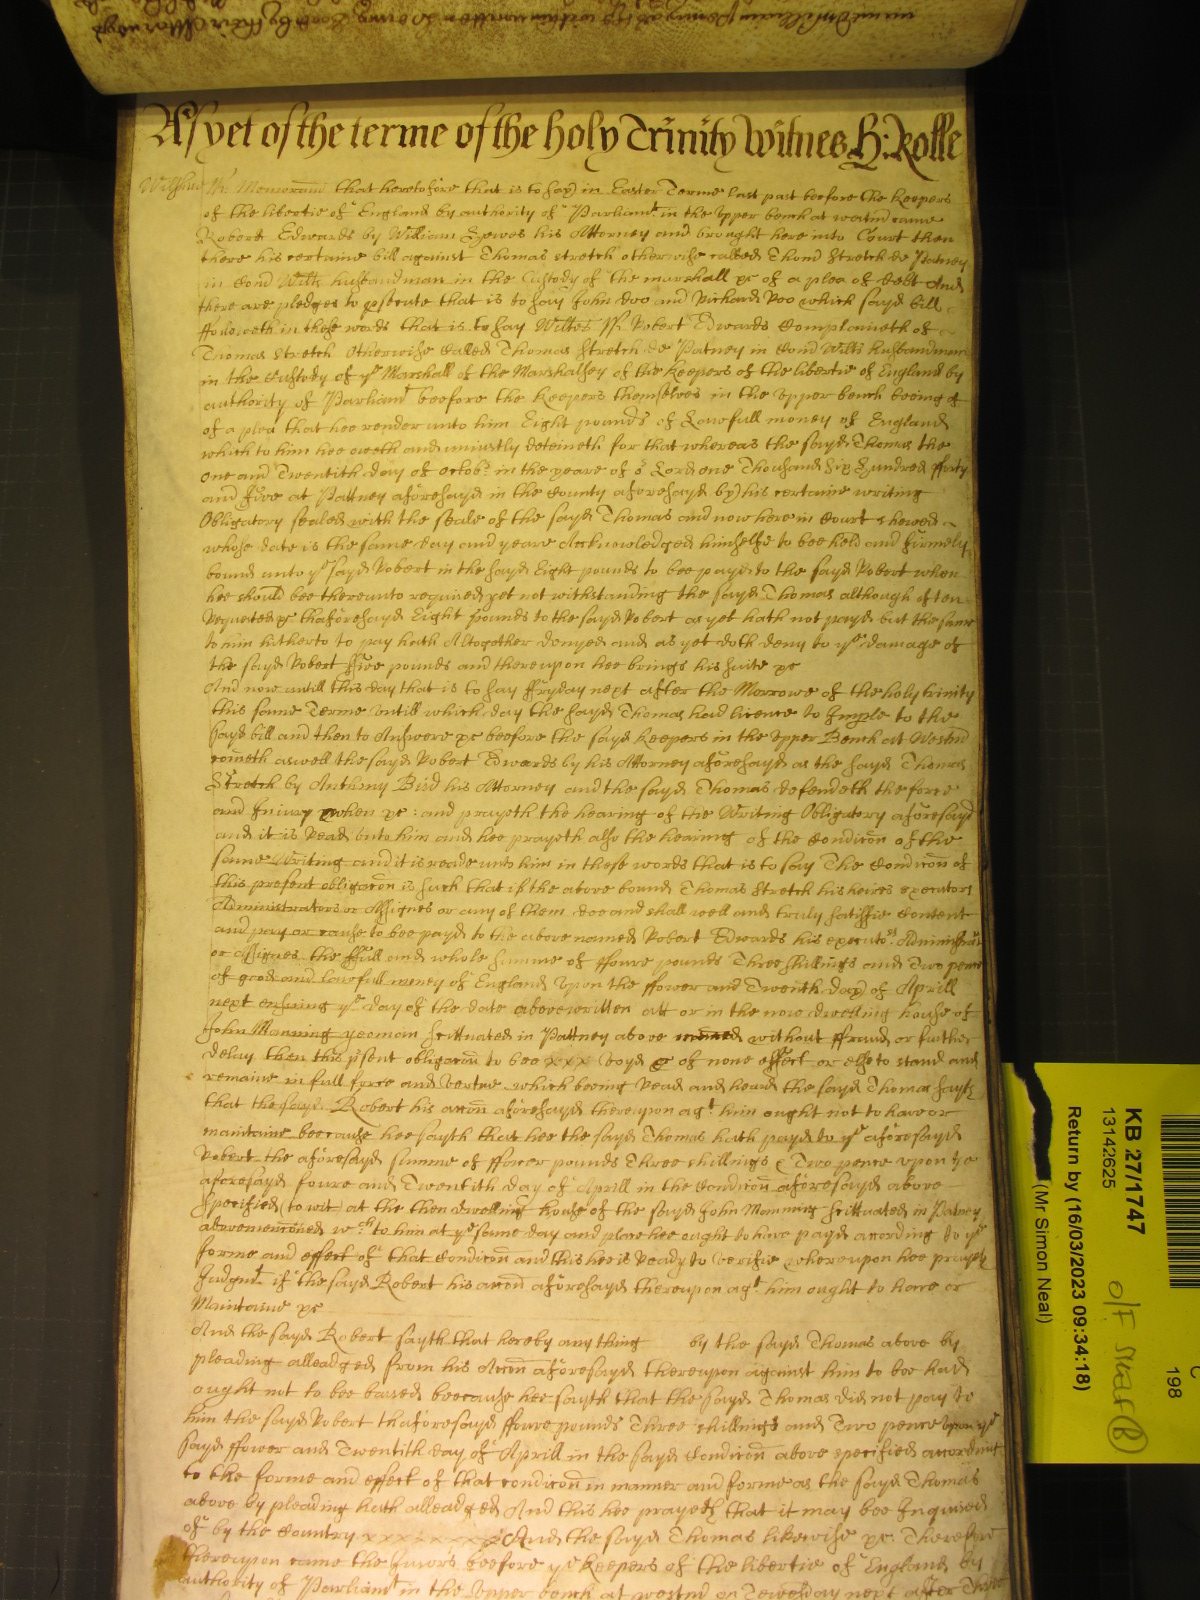 As yet of the terme of the holy Trinity Witnes H: Rolle
Wiltshire ss. Memorand that heretofore that is to say in Easter Terme last past beefore the Keepers
of the libertie of England by authority of Parliamt in the upper bench at westm came
Robert Edwards by William Yewes his Attorney and brought here into Court then
there his certaine bill against Thomas Stretch otherwise called Thom Stretch de Patney
in Com Wilts husbandman in the Custody of the marshall &c of a plea of debt And
there are pledges to psecute that is to say John Doo and Richard Roo which sayd bill
ffolloweth in these words that is to say Wiltes ss. Robert Edwards Complaineth of
Thomas Stretch Otherwise Called Thomas Stretch de Patney in Com Wilts husbandman
in the Custody of ye Marshall of the Marshalsey of the Keepers of the libertie of England by
authority of Parliamt beefore the Keepers themselves in the upper bench beeing of
of a plea that hee render unto him Eight pounds of Lawfull money of England
which to him hee oweth and uniustly deteineth for that whereas the sayd Thomas the
One and Twentith day of Octobr in the yeare of or Lord one Thousand Six Hundred fforty
and ffive at Pattney aforesayd in the County aforesayd by his certaine writing
Obligatory sealed with the seale of the sayd Thomas and now here in Court shewed
whose date is the same day and yeare Acknowledged himselfe to bee held and firmely
bound unto ye sayd Robert in the sayd Eight pounds to bee payd to the sayd Robert when
hee should bee thereunto required yet not withstanding the sayd Thomas although often
Requested &c thaforesayd Eight pounds to the sayd Robert as yet hath not payd but the same
to him hitherto to pay hath Altogether denyed and as yet doth deny to ye damage of
the sayd Robert ffive pounds and thereupon hee brings his suite &c
And now untill this day that is to say ffryday next after the Morrowe of the holy trinity
this same Terme untill which day the sayd Thomas had licence to Imple to the
sayd bill and then to Answere &c beefore the sayd Keepers in the upper Bench at Westm
cometh aswell the sayd Robert Edwards by his Attorney aforesayd as the sayd Thomas
Stretch by Anthony Bird his Attorney and the sayd Thomas defendeth the force
and Iniury when &c: and prayeth the hearing of the Writing Obligatory aforesayd
and it is Read unto him and hee prayeth also the hearing of the Condicon of the
same Writing and it is reade unto him in these words that is to say The Condicon of
this present obligacon is such that if the above bound Thomas Stretch his heires executors
Administrators or Assignes or any of them doe and shall well and truly satisfie Content
and pay or cause to bee payd to the above named Robert Edwards his executors Administrat
or Assignes the ffull and whole summe of ffoure pounds Three shillings and Two pence
of good and lawfull money of England Upon the ffower and Twenth day of Aprill
next ensuing ye day of the date above written att or in the now dwelling house of
John Manning yeoman scittuated in Pattney above without ffraud or further
delay then this psent obligacon to bee xxx voyd & of none effect or else to stand and
remaine in full force and vertue which beeing Read and heard the sayd Thomas sayth
that the sayd Robert his accon aforesayd thereupon agt him ought not to have or
maintaine beecause hee sayth that hee the sayd Thomas hath payd to ye aforesayd
Robert the aforesayd summe of ffower pounds Three shillings & Two pence upon ye
aforesayd foure and Twentith day of Aprill in the Condicon aforesayd above
specified (to wit) at the then dwelling house of the sayd John Manning scittuated in Patney
abovemencioned wch to him at ye same day and place hee ought to have payd according to ye
forme and effect of that Condicon and this hee is Ready to verifie whereupon hee prayeth
Judgmt if the sayd Robert his accon aforesayd thereupon agt him ought to have or
Maintaine &c
And the sayd Robert sayth that hereby any thing by the sayd Thomas above by
pleading alleadged from his Accon aforesayd thereupon against him to bee had
ought not to bee bared beecause hee sayth that the sayd Thomas did not pay to
him the sayd Robert thaforesayd ffoure pounds Three shillings and Two pence upon ye
sayd ffower and Twentith day of Aprill in the sayd Condicon above specified according
to the forme and effect of that condicon in manner and forme as the sayd Thomas
above by pleading hath alleadged And this hee prayeth that it may bee Inquired
of by the Country xxx And the sayd Thomas likewise &c. Therefore
thereupon came the Jurors beefore ye keepers of the libertie of England by
authority of Parliamt in the Upper bench at westm on Tewesday next after Three
KB 27/1747
13142625
Return by (16/03/2023 09:34:18)
(Mr Simon Neal)
C
198